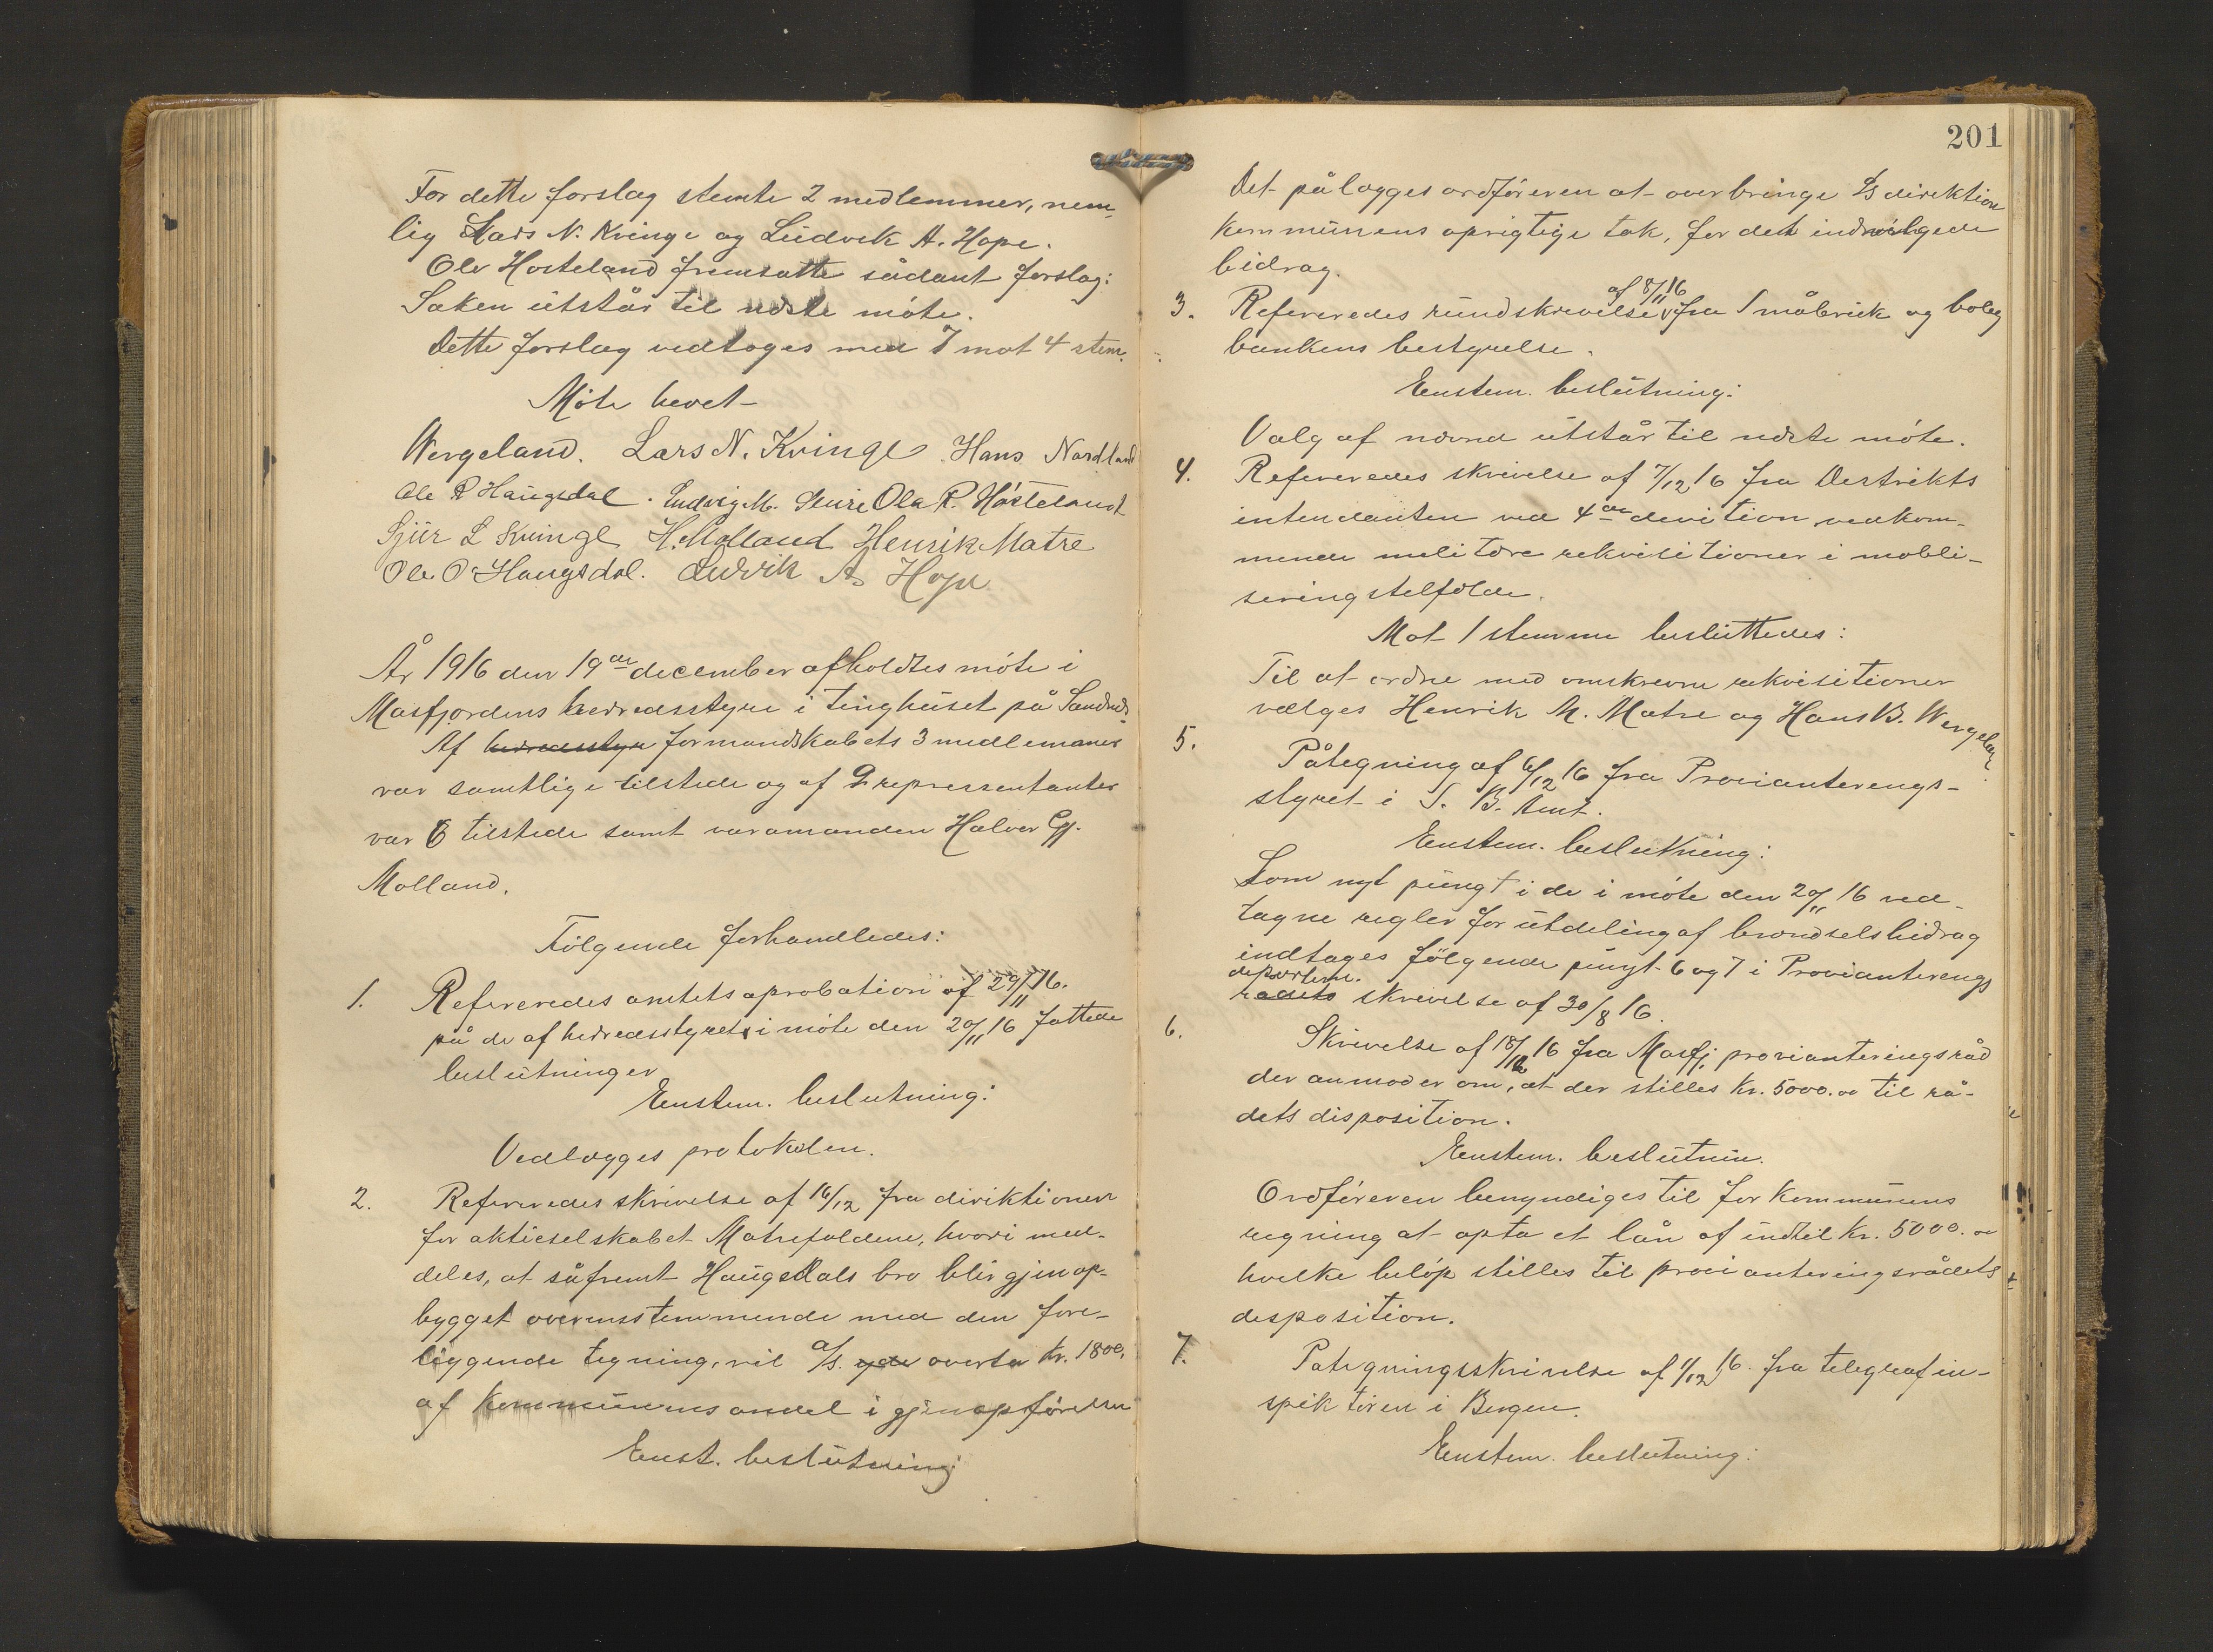 For dette forslag stemte 2 medlemmer, nem-
lig Lars N. Kvinge og Ludvik A. Hope.
Ole Hosteland fremsatte sådant forslag:
Saken utstår til næste møte.
Dette forslag vedtoges med 7 mot 4 stem.
Møte hevet
Wergeland. Lars N. Kvinge Hans Nordland
Ole R Haugsdal. Ludvig M. Ola R. Hosteland
Sjur L Kvinge H. Molland Henrik Matre
Ole O Haugsdal. Ludvik A Hope
År 1916 den 19de december afholdtes møte i
Masfjordens herredsstyre i tinghuset på Sandnes
Af herredsstyre formandskabets 3 medlemmer
var samtlige tilstede og af 9 repressentanter
var 6 tilstede samt varamanden Halvor Gj.
Molland.
Følgende forhandledes:
1. Refereredes amtets aprobation af 29/11 16.
på de af herredsstyret i møte den 20/11 16 fattede
beslutninger
Enstem. beslutning:
Vedlægges protokolen.
2. Refereredes skrivelse af 16/12 fra diriktionen
for aktieselskabet Matrefaldene, hvori med-
deles, at såfremt Haugsdals bro blir gjenop-
bygget overensstemmende med den fore-
liggende tegning, vil A/S. yde overta kr. 1800,
af kommunens andel i gjenopførelsen
Enst. beslutning
201
Det pålægges ordføreren at overbringe A/s direktion
kommunens oprigtige tak, for det indvilgede
bidrag.
af 8/11 16
3. Refereredes rundskrivelse fra Småbruk og bolig
bankens bestyrelse.
Enstem. beslutning:
Valg af nævnd utstår til næste møte.
4. Refereredes skrivelse af 7/12 16 fra Destrikts
intendanten ved 4de devition vedkom-
mende melitære rekvisitioner i mobli-
seringstelfælde.
Mot 1 stemme besluttedes:
Til at ordne med omskrevne rekvisitioner
vælges Henrik M. Matre og Hans B. Wergeland
5. Påtegning af 6/12 16 fra Provianterengs-
styret i S. B. Amt.
Enstem. beslutning:
Som nyt pungt i de i møte den 20/11 16 ved-
tagne regler for utdeling af brændselsbidrag
indtages følgende pungt 6 og 7 i Provianterengs
departem.
radets skrivelse af 30/8 16.
6. Skrivelse af 18/12 16 fra Masfj. provianteringsråd
der anmoder om, at der stilles kr. 5000.00 til rå-
dets disposition.
Enstem. beslutnin.
Ordføreren bemyndiges til for kommunens
regning at opta et lån af indtil kr. 5000.00
hvilke beløp stilles til provianteringsrådets
desposition.
7. Pategningsskrivelse af 1/12 16. fra telegrafin-
spiktøren i Bergen.
Enstem. beslutning: